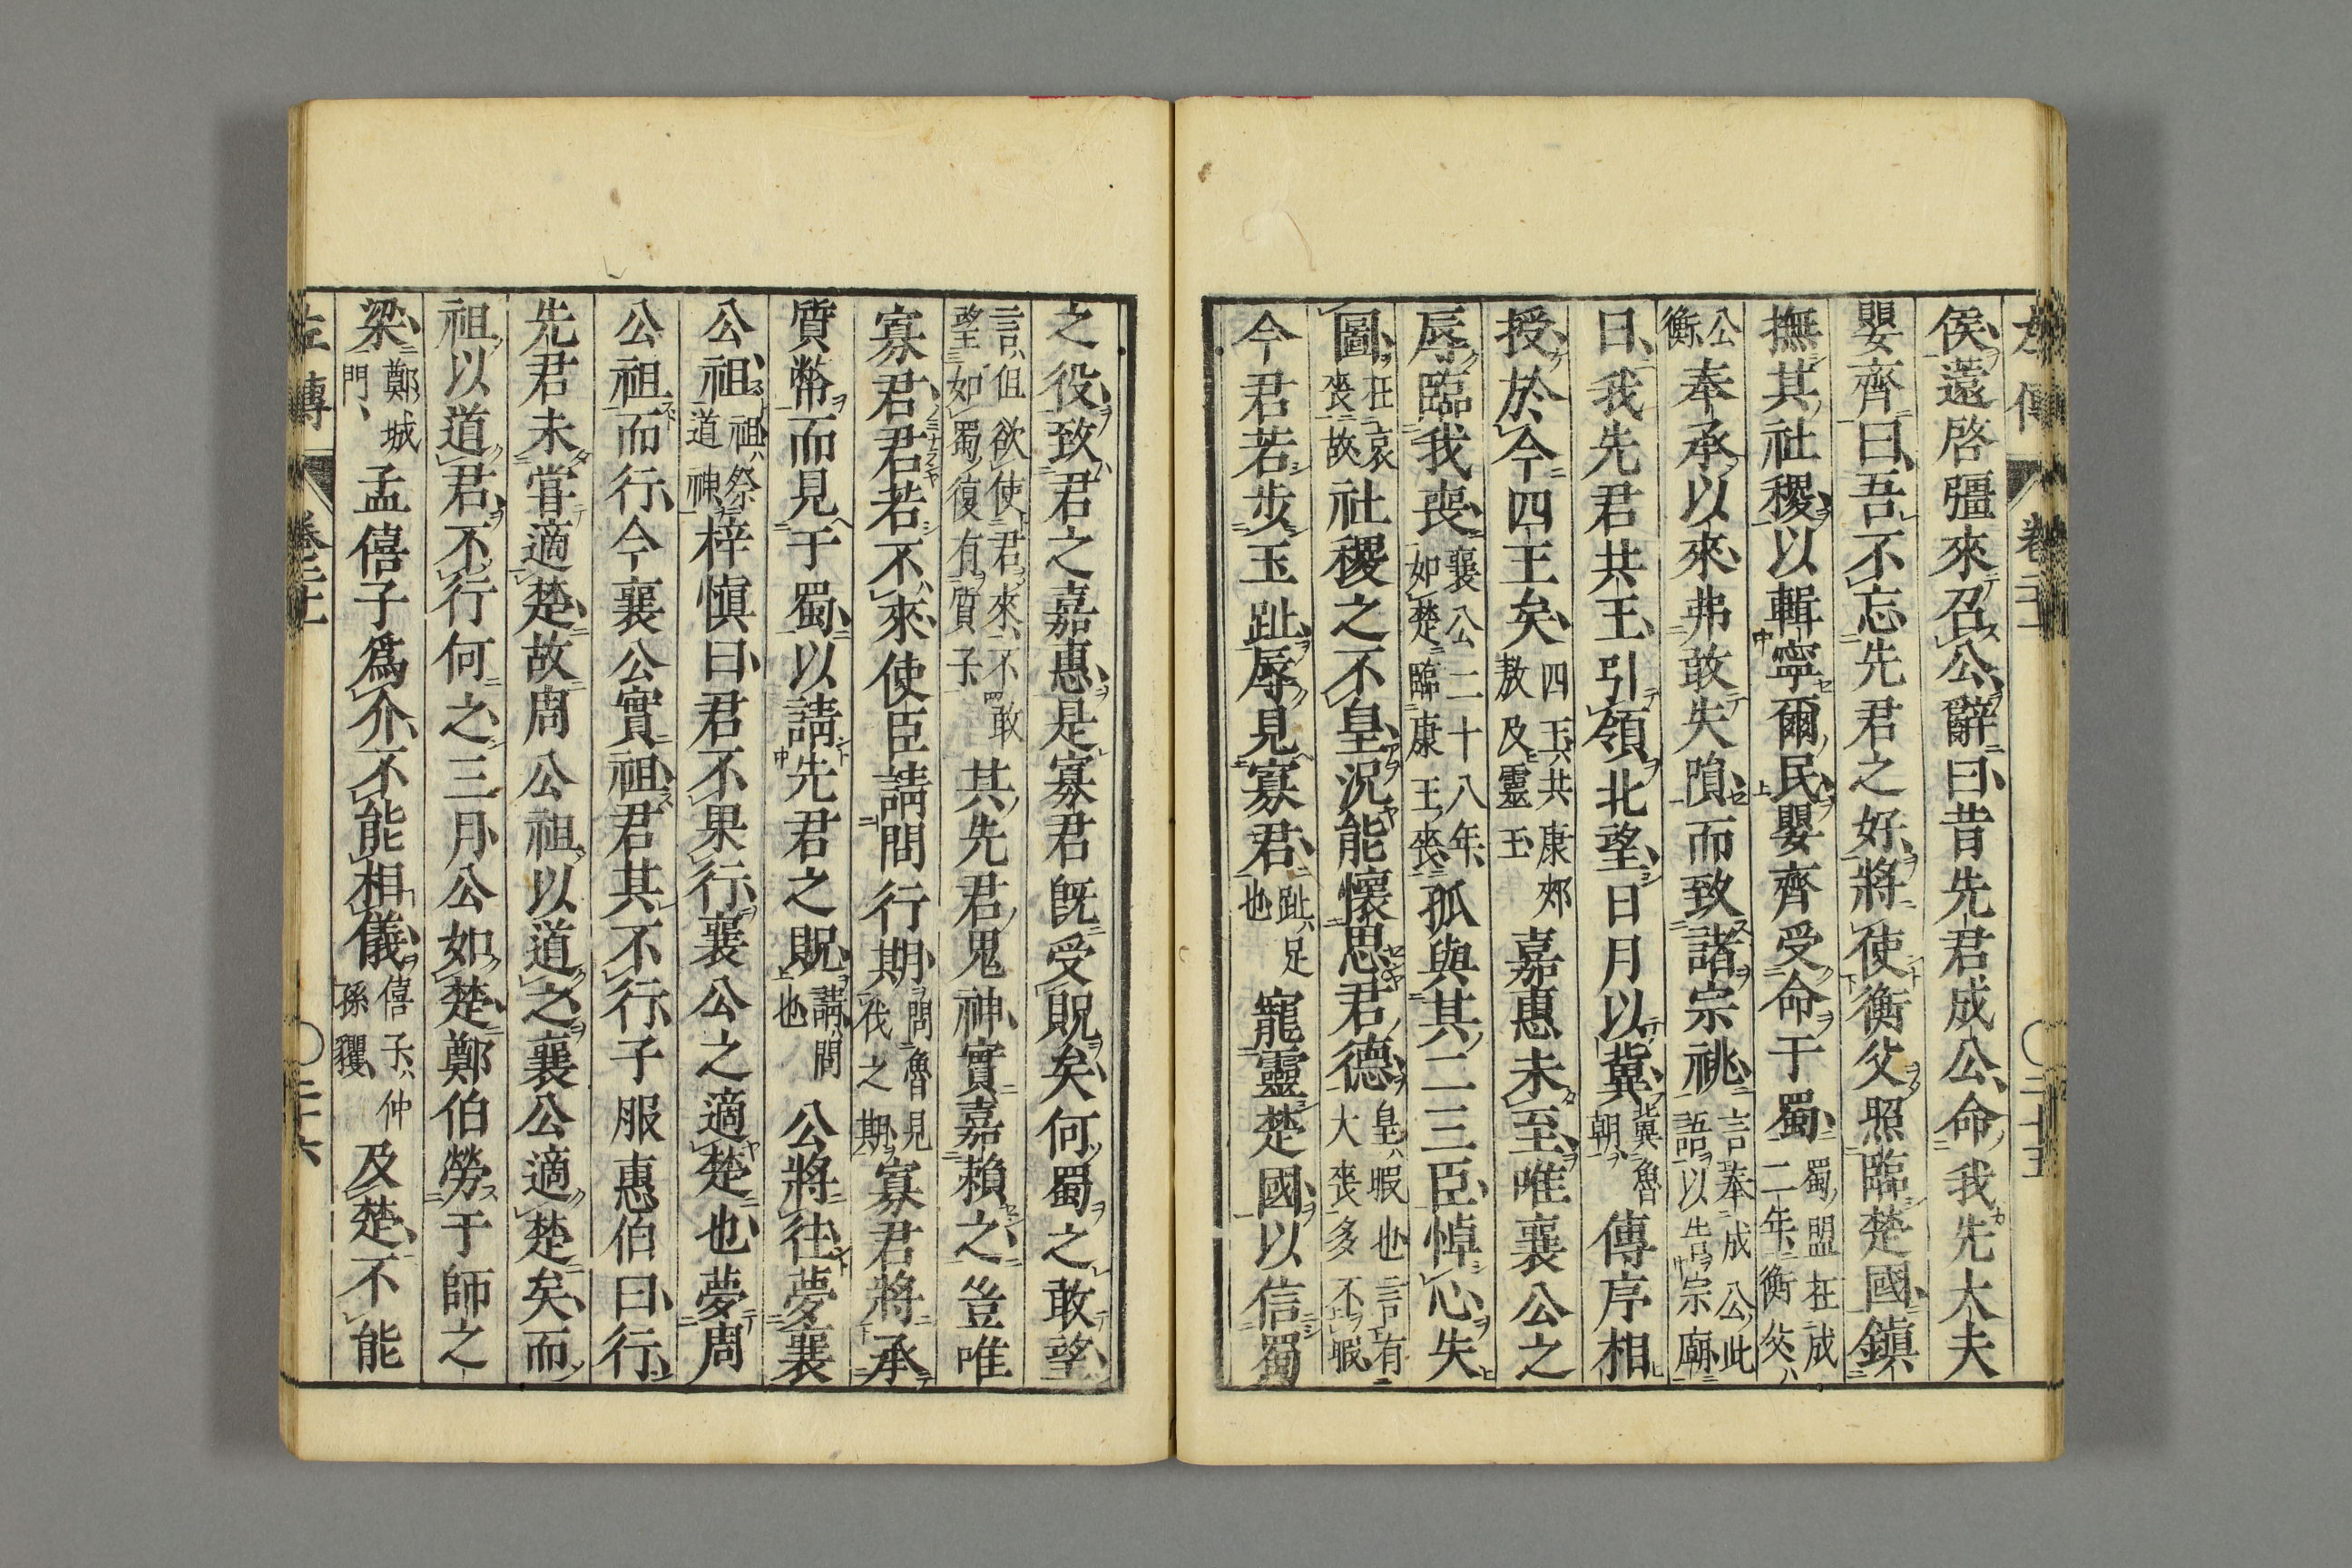 侯薳啓彊來召公辭曰昔先君成公命我先大夫
嬰齊曰吾不忘先君之好將使衡父照臨楚國鎮
撫其社稷以輯寧爾民嬰齊受命于蜀蜀盟在成二年衡父公
衡奉承以來弗敢失隕而致諸宗祧言奉成公此語以告宗廟
曰我先君共王引領北望日月以冀冀魯朝傳序相
授於今四王矣四王共康郟敖及靈王嘉惠未至唯襄公之
辱臨我喪襄公二十八年如楚臨康王喪孤與其二三臣悼心失
圖在哀喪故社稷之不皇況能懷思君德皇暇也言有大喪多不暇
今君若步玉趾辱見寡君趾足也寵靈楚國以信蜀
之役致君之嘉惠是寡君既受貺矣何蜀之敢望
言但欲使君來不敢望如蜀復有質子其先君鬼神實嘉賴之豈唯
寡君君若不來使臣請問行期問魯見伐之期寡君將承
質幣而見于蜀以請先君之貺請問也公將往夢襄
公祖祖祭道神梓愼曰君不果行襄公之適楚也夢周
公祖而行今襄公實祖君其不行子服惠伯曰行
先君未嘗適楚故周公祖以道之襄公適楚矣而
祖以道君不行何之三月公如楚鄭伯勞于師之
梁鄭城門孟僖子爲介不能相儀僖子仲孫貜及楚不能
左傳
卷二十一
二十五
左傳
二十六